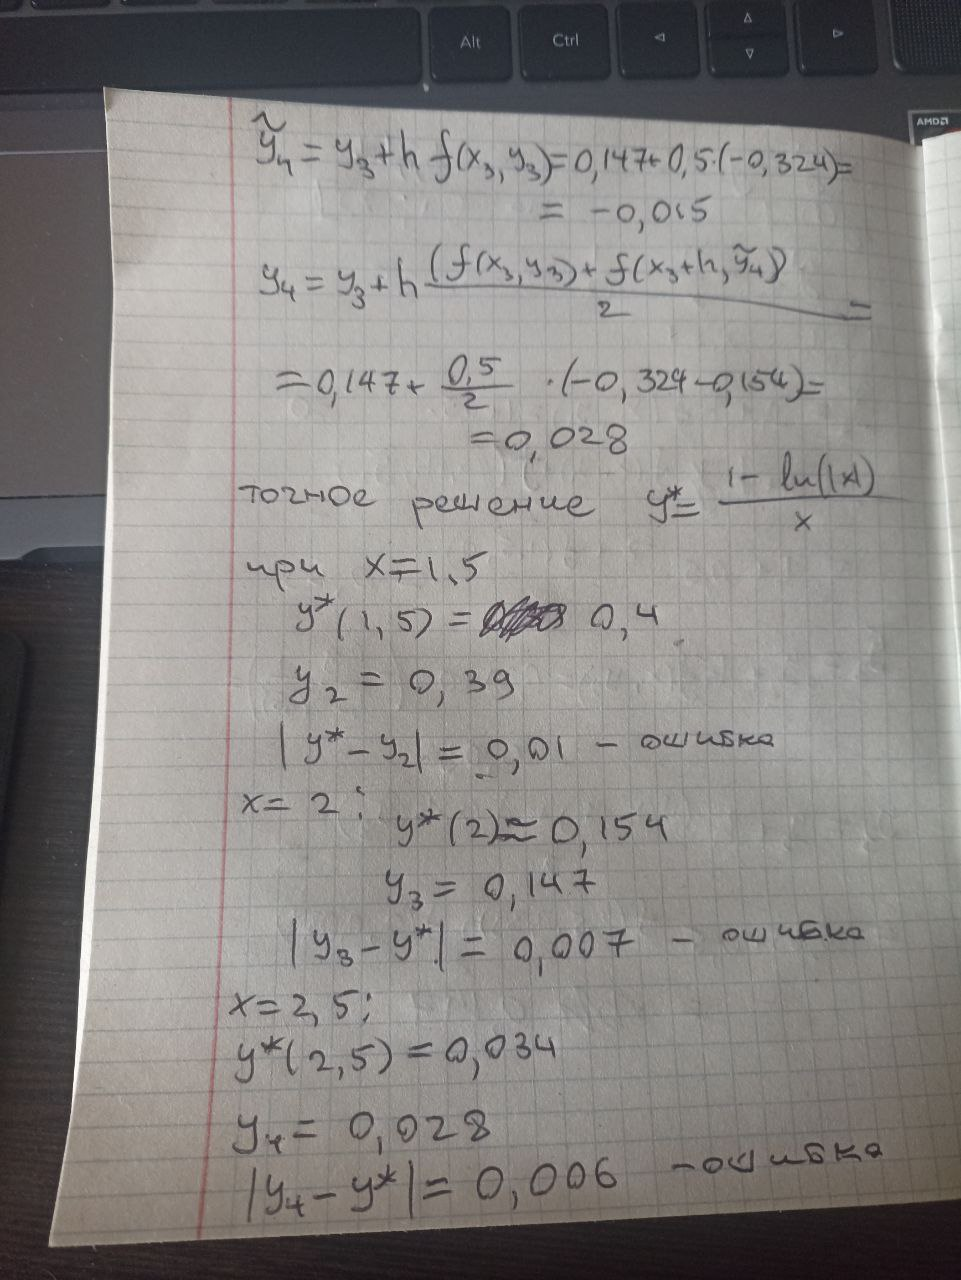 Alt Ctrl ◁ △ ▽ ▷
AMD
ỹ₄ = y₃ + h f(x₃, y₃) = 0,147 + 0,5·(-0,324) =
= -0,015
y₄ = y₃ + h (f(x₃, y₃) + f(x₃+h, ỹ₄)) / 2 =
= 0,147 + 0,5/2 · (-0,324 - 0,154) =
= 0,028
точное решение y* = (1 - ln(|x|)) / x
при x = 1,5
y*(1,5) = 0,4
y₂ = 0,39
|y* - y₂| = 0,01 - ошибка
x = 2:
y*(2) ≈ 0,154
y₃ = 0,147
|y₃ - y*| = 0,007 - ошибка
x = 2,5:
y*(2,5) = 0,034
y₄ = 0,028
|y₄ - y*| = 0,006 - ошибка